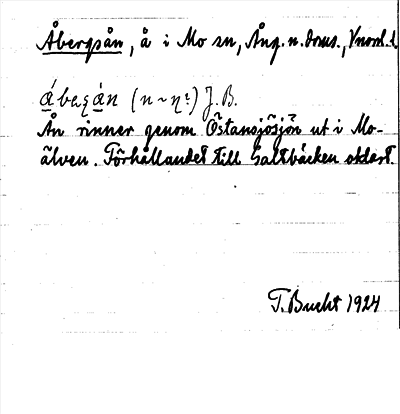 Åbergsån, å i Mo sn, Ång. n. doms., Vnorrl. l
ábagán (n~n:) J.B.
Ån rinner genom Östansjösjön ut i Mo-
älven. Förhållandet till Saltbäcken oklart.
T. Bucht 1924